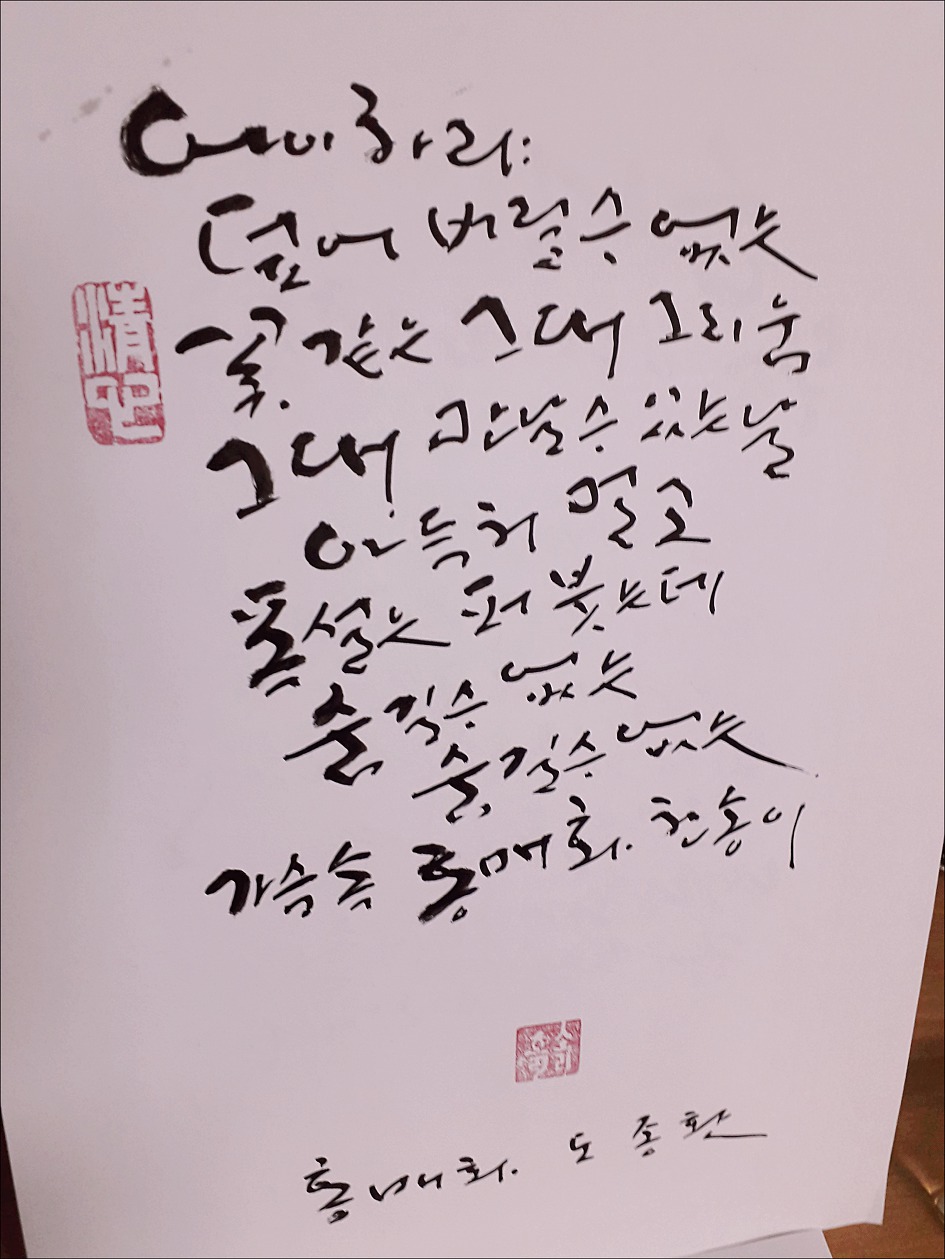 어이하랴
덮어 버릴 수 없는
꽃 같은 그대 그리움
그대 만날 수 있는 날
아득히 멀고
폭설은 퍼붓는데
숨길 수 없는
숨길 수 없는
가슴속 홍매화. 한송이
홍매화. 도종환